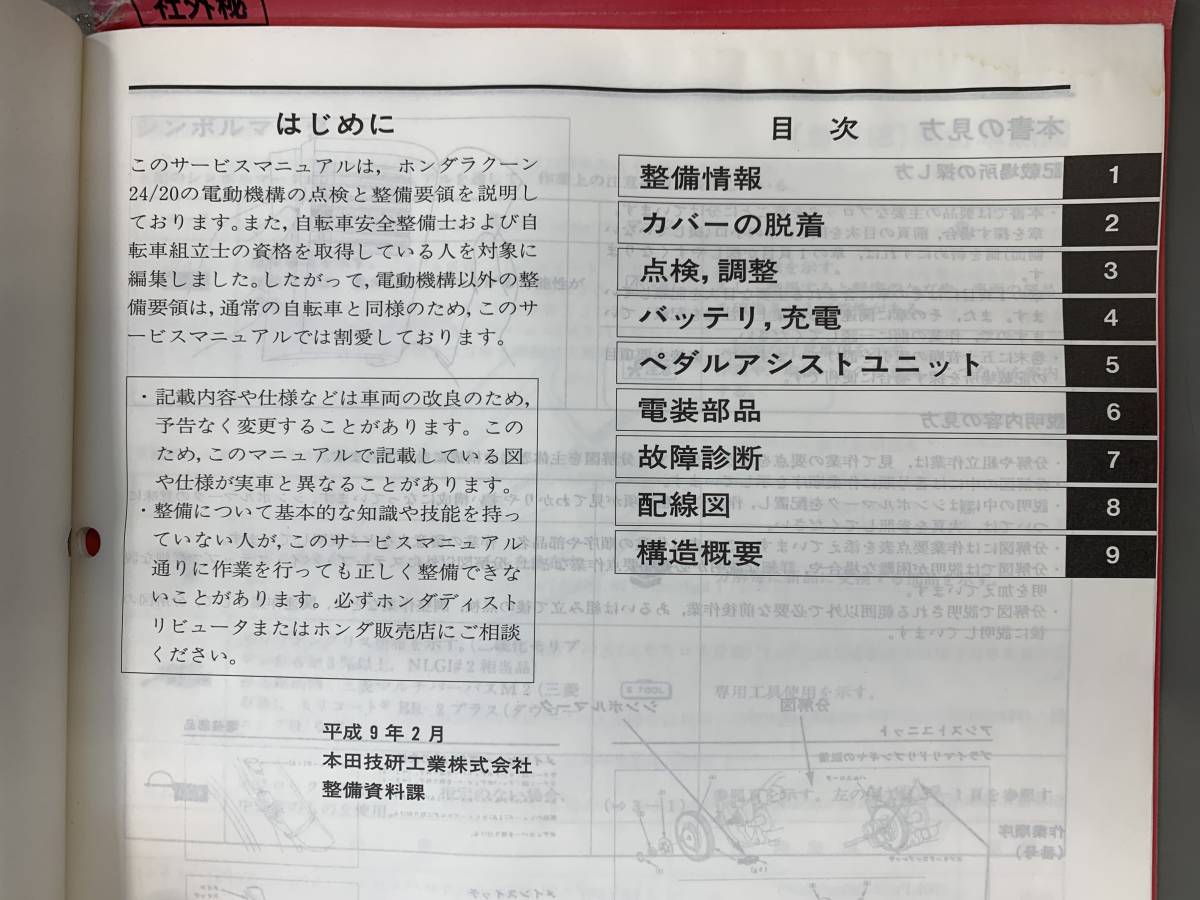 社外秘
はじめに
このサービスマニュアルは，ホンダラクーン
24/20の電動機構の点検と整備要領を説明し
ております。また，自転車安全整備士および自
転車組立士の資格を取得している人を対象に
編集しました。したがって，電動機構以外の整
備要領は，通常の自転車と同様のため，このサ
ービスマニュアルでは割愛しております。
・記載内容や仕様などは車両の改良のため，
予告なく変更することがあります。この
ため，このマニュアルで記載している図
や仕様が実車と異なることがあります。
・整備について基本的な知識や技能を持っ
ていない人が，このサービスマニュアル
通りに作業を行っても正しく整備できな
いことがあります。必ずホンダディスト
リビュータまたはホンダ販売店にご相談
ください。
平成9年2月
本田技研工業株式会社
整備資料課
目 次
整備情報 1
カバーの脱着 2
点検，調整 3
バッテリ，充電 4
ペダルアシストユニット 5
電装部品 6
故障診断 7
配線図 8
構造概要 9